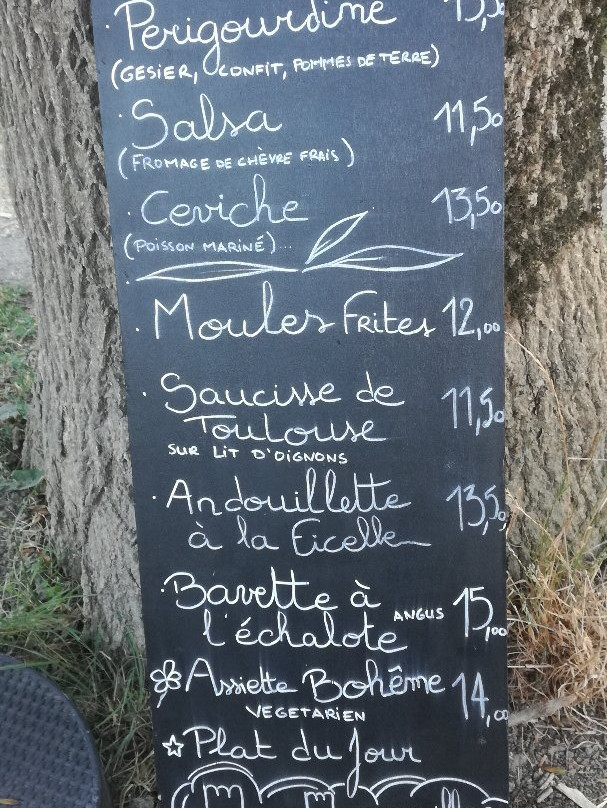 · Périgourdine
(GESIER, CONFIT, POMMES DE TERRE)
· Salsa 11,50
(FROMAGE DE CHÈVRE FRAIS)
· Ceviche 13,50
(POISSON MARINÉ)...
· Moules Frites 12,00
· Saucisse de
Toulouse 11,50
SUR LIT D'OIGNONS
· Andouillette 13,50
à la Ficelle
· Bavette à
l'échalote ANGUS 15,00
Assiette Bohême 14,00
VEGETARIEN
☆ Plat du Jour